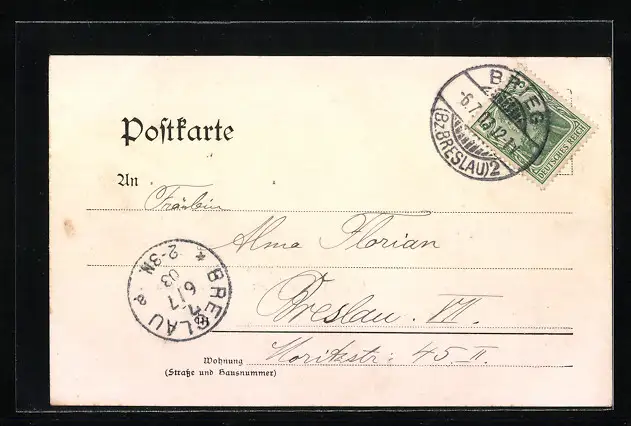 BRIEG
-6.7.03 12-1
(Bz. BRESLAU) 2
DEUTSCHES REICH
Postkarte
An
Fräulein
Alma Florian
BRESLAU a
* 6/7 03
2-3N.
Breslau. VII.
in
Wohnung Moritzstr: 45. II.
(Straße und Hausnummer)